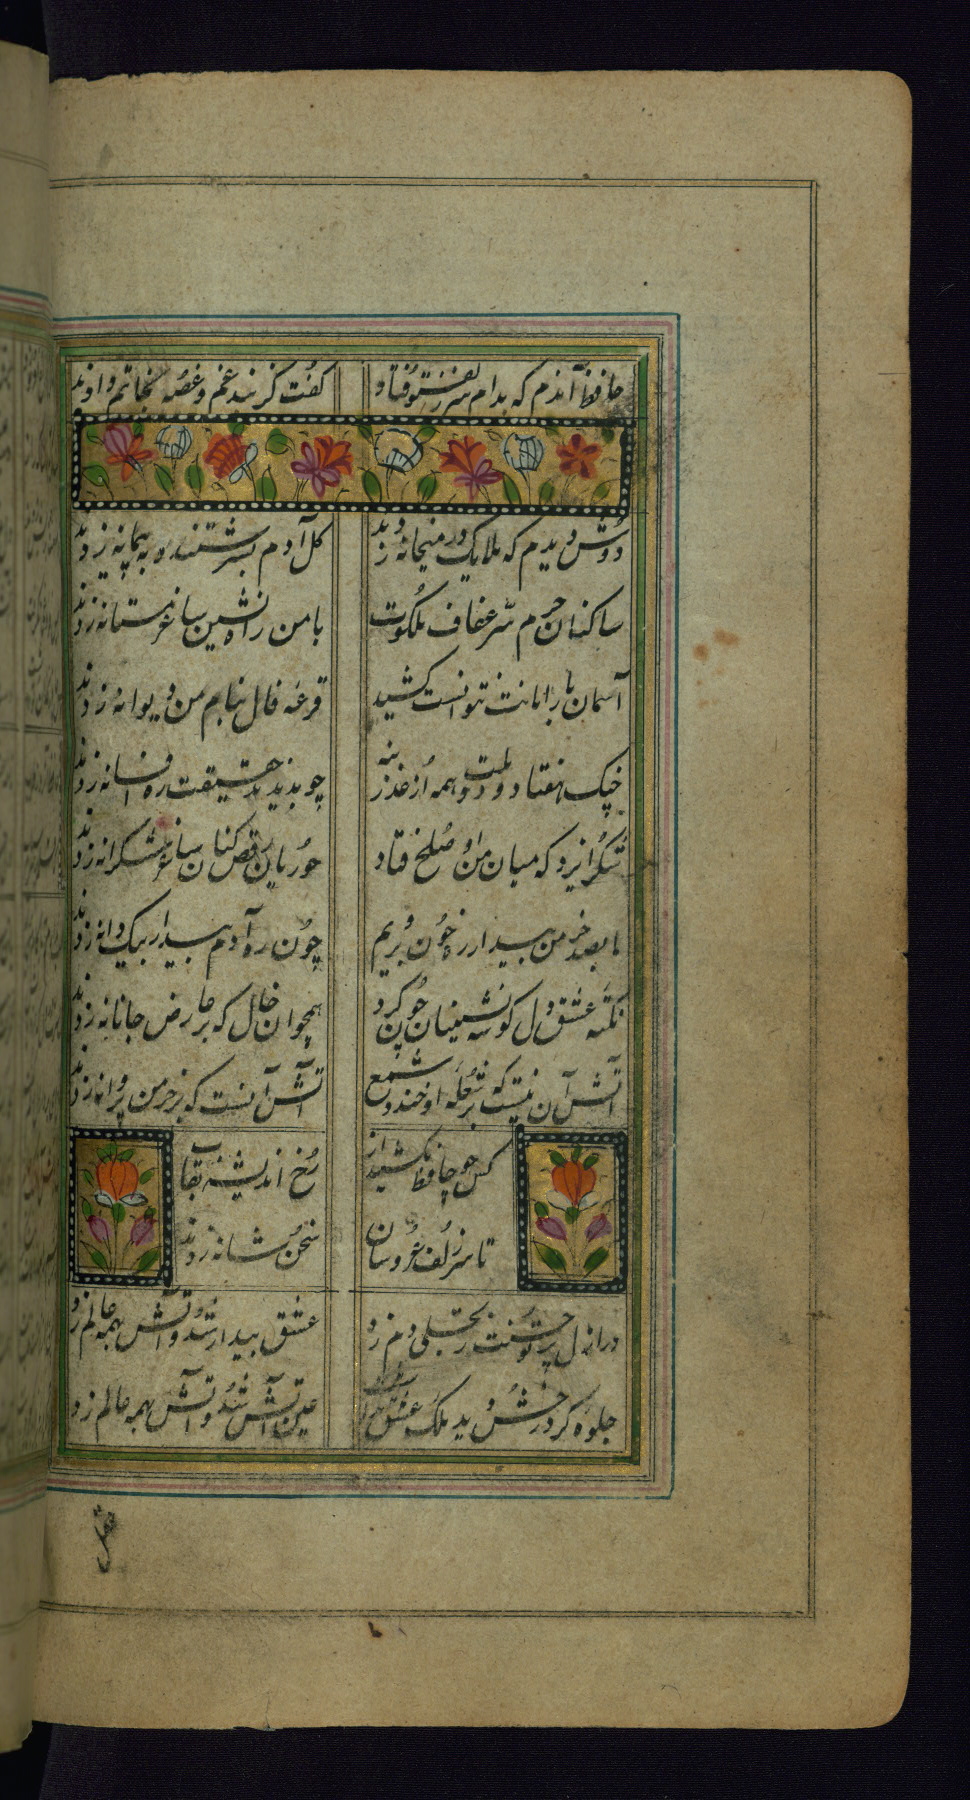 حافظ آندم که بدام سر زلفت تو فتاد
کفت کز بند غم و غصه نجاتم دادند
دوش دیدم که ملایک در میخانه زدند
کل آدم بسرشتند و به پیمانه زدند
ساکنان حرم سر عفاف ملکوت
با من راه نشین ساغر مستانه زدند
آسمان بار امانت نتوانست کشید
قرعه فال بنام من دیوانه زدند
جنک هفتاد و دو ملت همه را عذر بنه
چو ندیدند حقیقت ره افسانه زدند
شکر ایزد که میان من و او صلح فتاد
حوریان رقص کنان ساغر شکرانه زدند
ما بصد خرمن پندار ز ره چون نرویم
چون ره آدم بیدار بیک دانه زدند
نکته عشق دل کوشه نشینان خون کرد
همچو آن خال که بر عارض جانانه زدند
آتش آن نیست که بر شعله او خندد شمع
آتش آنست که بر خرمن پروانه زدند
کس چو حافظ نکشید از
رخ اندیشه نقاب
تا سر زلف عروسان
سخن شانه زدند
در ازل پرتو حسنت ز تجلی دم زد
عشق پیدا شد و آتش بهمه عالم زد
جلوه کرد رخش دید ملک عشق نداشت
عین آتش شد و آتش بهمه عالم زد
عقل